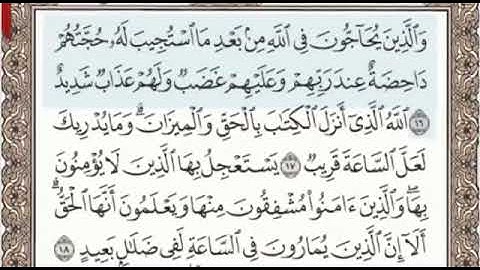 وَالَّذِينَ يُحَاجُّونَ فِي اللَّهِ مِنْ بَعْدِ مَا اسْتُجِيبَ لَهُ حُجَّتُهُمْ
دَاحِضَةٌ عِندَ رَبِّهِمْ وَعَلَيْهِمْ غَضَبٌ وَلَهُمْ عَذَابٌ شَدِيدٌ
١٦ اللَّهُ الَّذِي أَنزَلَ الْكِتَابَ بِالْحَقِّ وَالْمِيزَانَ ۗ وَمَا يُدْرِيكَ
لَعَلَّ السَّاعَةَ قَرِيبٌ ١٧ يَسْتَعْجِلُ بِهَا الَّذِينَ لَا يُؤْمِنُونَ
بِهَا ۖ وَالَّذِينَ ءَامَنُوا مُشْفِقُونَ مِنْهَا وَيَعْلَمُونَ أَنَّهَا الْحَقُّ ۗ
أَلَا إِنَّ الَّذِينَ يُمَارُونَ فِي السَّاعَةِ لَفِي ضَلَالٍ بَعِيدٍ ١٨